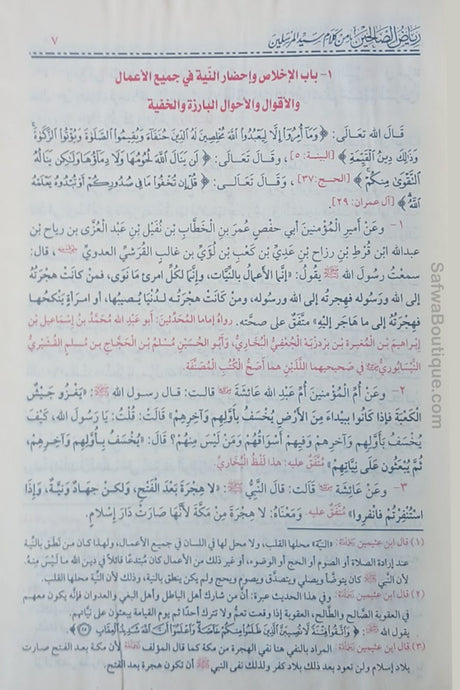 رياض الصالحين من كلام سيد المرسلين
٧
١- باب الإخلاص وإحضار النية في جميع الأعمال
والأقوال والأحوال البارزة والخفية
قَالَ الله تعَالَى: ﴿وَمَآ أُمِرُوٓا۟ إِلَّا لِيَعْبُدُوا۟ ٱللَّهَ مُخْلِصِينَ لَهُ ٱلدِّينَ حُنَفَآءَ وَيُقِيمُوا۟ ٱلصَّلَوٰةَ وَيُؤْتُوا۟ ٱلزَّكَوٰةَ ۚ
وَذَٰلِكَ دِينُ ٱلْقَيِّمَةِ﴾ [البينة: ٥]، وقَالَ تَعَالَى: ﴿لَن يَنَالَ ٱللَّهَ لُحُومُهَا وَلَا دِمَآؤُهَا وَلَٰكِن يَنَالُهُ
ٱلتَّقْوَىٰ مِنكُمْ﴾ [الحج: ٣٧]، وَقَالَ تَعَالَى: ﴿قُلْ إِن تُخْفُوا۟ مَا فِى صُدُورِكُمْ أَوْ تُبْدُوهُ يَعْلَمْهُ
ٱللَّهُ﴾ [آل عمران: ٢٩].
١- وعَنْ أميرِ الْمُؤْمِنينَ أَبي حفصٍ عُمرَ بنِ الْخَطَّابِ بْن نُفَيْل بْنِ عَبْد الْعُزَّى بن رياح بْن
عبدالله بْن قُرْطِ بْنِ رزاح بْنِ عَدِيِّ بْن كَعْب بْن لُؤَيِّ بن غالبٍ القُرَشِيِّ العدويِّ، قال:
سمعتُ رسُولَ الله ﷺ يقُولُ: «إنَّما الأَعمالُ بالنِّيَّات، وإِنَّمَا لِكُلِّ امرئٍ مَا نَوَى، فمنْ كانَتْ هجْرَتُهُ
إِلَى الله ورَسُولِه فهجرتُه إلى الله ورسُولِهِ، ومنْ كَانَتْ هجْرَتُه لدُنْيَا يُصيبُها، أَو امرَأَةٍ يَنْكحُها
فهْجْرَتُهُ إلى ما هَاجَر إليْهِ» متَّفَقٌ على صحَّتِه. رواه إماما المُحَدِّثِين: أَبُو عَبْدِ الله مُحَمَّدُ بنُ إِسْمَاعِيل بْن
إِبْراهيمَ بْن الْمُغيرة بْن برْدزْبَةَ الْجُعْفِيُّ الْبُخَارِيُّ، وَأَبُو الحُسَيْنِ مُسْلمُ بْن الْحَجَّاج بن مُسلمٍ القُشَيْريُّ
النَّيْسَابُوريُّ في صَحيحَيهِما اللَّذَيْنِ هما أَصَحُّ الْكُتُبِ الْمُصَنَّفَة.
٢- وَعَنْ أُمِّ الْمُؤْمِنينَ أُمِّ عَبْدِ الله عَائشَةَ قالت: قال رسول الله ﷺ: «يَغْزُو جَيْشٌ
الْكَعْبَةَ فَإِذَا كَانُوا ببيْداءَ مِنَ الأَرْضِ يُخْسَفُ بأَوَّلِهِم وَآخِرِهِمْ» قَالَتْ: قُلْتُ: يَا رَسُولَ الله، كَيْفَ
يُخْسَفُ بَأَوَّلِهِم وَآخِرِهِمْ وَفِيهِمْ أَسْوَاقُهُمْ وَمَنْ لَيْسَ مِنْهُمْ؟ قَالَ: «يُخْسَفُ بِأَوَّلِهِم وَآخِرِهِمْ،
ثُمَّ يُبْعَثُون عَلَى نِيَّاتِهِمْ» مُتَّفَقٌ عليه: هذا لَفْظُ الْبُخَارِيِّ.
٣- وعَنْ عَائِشَة قَالَت: قالَ النَّبِيُّ ﷺ: «لا هِجْرَةَ بَعْدَ الْفَتْحِ، وَلكنْ جِهَادٌ وَنِيَّةٌ، وَإِذَا
اسْتُنْفِرْتُمْ فانْفِرُوا» مُتَّفَقٌ عليه. وَمَعْنَاهُ: لا هِجْرَةَ مِنْ مَكَّةَ لأَنَّهَا صَارَتْ دَارَ إِسْلامٍ.
(١) قال ابن عثيمين: «النية» محلها القلب، ولا محل لها في اللسان في جميع الأعمال، ولهذا كان من نطق بالنية
عند إرادة الصلاة أو الصوم أو الحج أو الوضوء، أو غير ذلك من الأعمال كان مُبتدعًا قائلًا في دين الله ما ليس منه.
لأن النبي ﷺ كان يتوضأ ويصلي ويتصدق ويصوم ويحج ولم يكن ينطق بالنية، وذلك لأن النية محلها القلب.
(٢) قال ابن عثيمين: وفي هذا الحديث عبرة: أن من شارك أهل الباطل وأهل البغي والعدوان فإنه يكون معهم
في العقوبة الصالح والطالح، العقوبة إذا وقعت تعم ولا تترك أحدًا ثم يوم القيامة يبعثون على نياتهم.
يقول الله: ﴿وَٱتَّقُوا۟ فِتْنَةً لَّا تُصِيبَنَّ ٱلَّذِينَ ظَلَمُوا۟ مِنكُمْ خَآصَّةً ۖ وَٱعْلَمُوٓا۟ أَنَّ ٱللَّهَ شَدِيدُ ٱلْعِقَابِ﴾.
(٣) قال ابن عثيمين: المراد بالنفي هنا نفي الهجرة من مكة كما قال المؤلف لأن مكة بعد الفتح صارت
بلاد إسلام ولن تعود بعد ذلك بلاد كفر ولذلك نفى النبي ﷺ أن تكون هجرة بعد الفتح.
SafwaBoutique.com